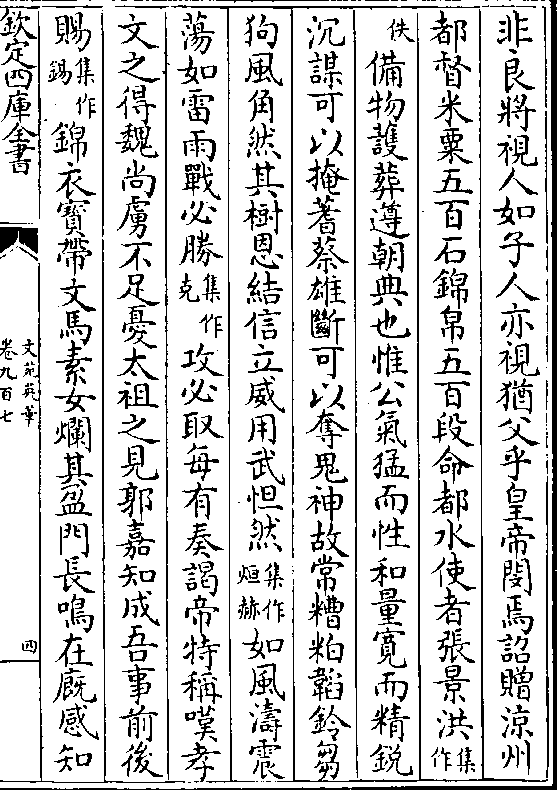 非良將視人如子人亦視猶父乎皇帝閔焉詔贈涼州
都督米粟五百石錦帛五百段命都水使者張景洪集作
佚備物護葬遵朝典也惟公氣猛而性和量寛而精銳
沉謀可以掩蓍蔡雄斷可以奪鬼神故常糟粕韜鈐芻
狗風角然其樹恩結信立威用武怛然集作烜赫如風濤震
蕩如雷雨戰必勝集作克攻必取每有奏謁帝特稱嘆孝
文之得魏尚虜不足憂太祖之見郭嘉知成吾事前後
賜集作錫錦衣寶帶文馬素女爛其盈門長鳴在廐感知
欽定四庫全書
文苑英華
卷九百七
四